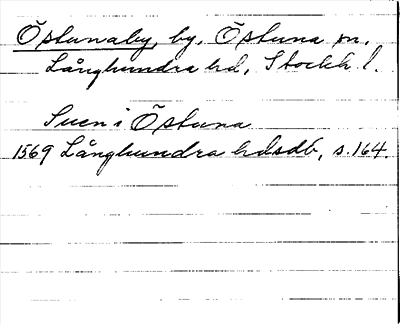 Östunaby, by, Östuna sn,
Långhundra hd, Stockh. l.
Suen i Östuna
1569 Långhundra hdsdb, s. 164.